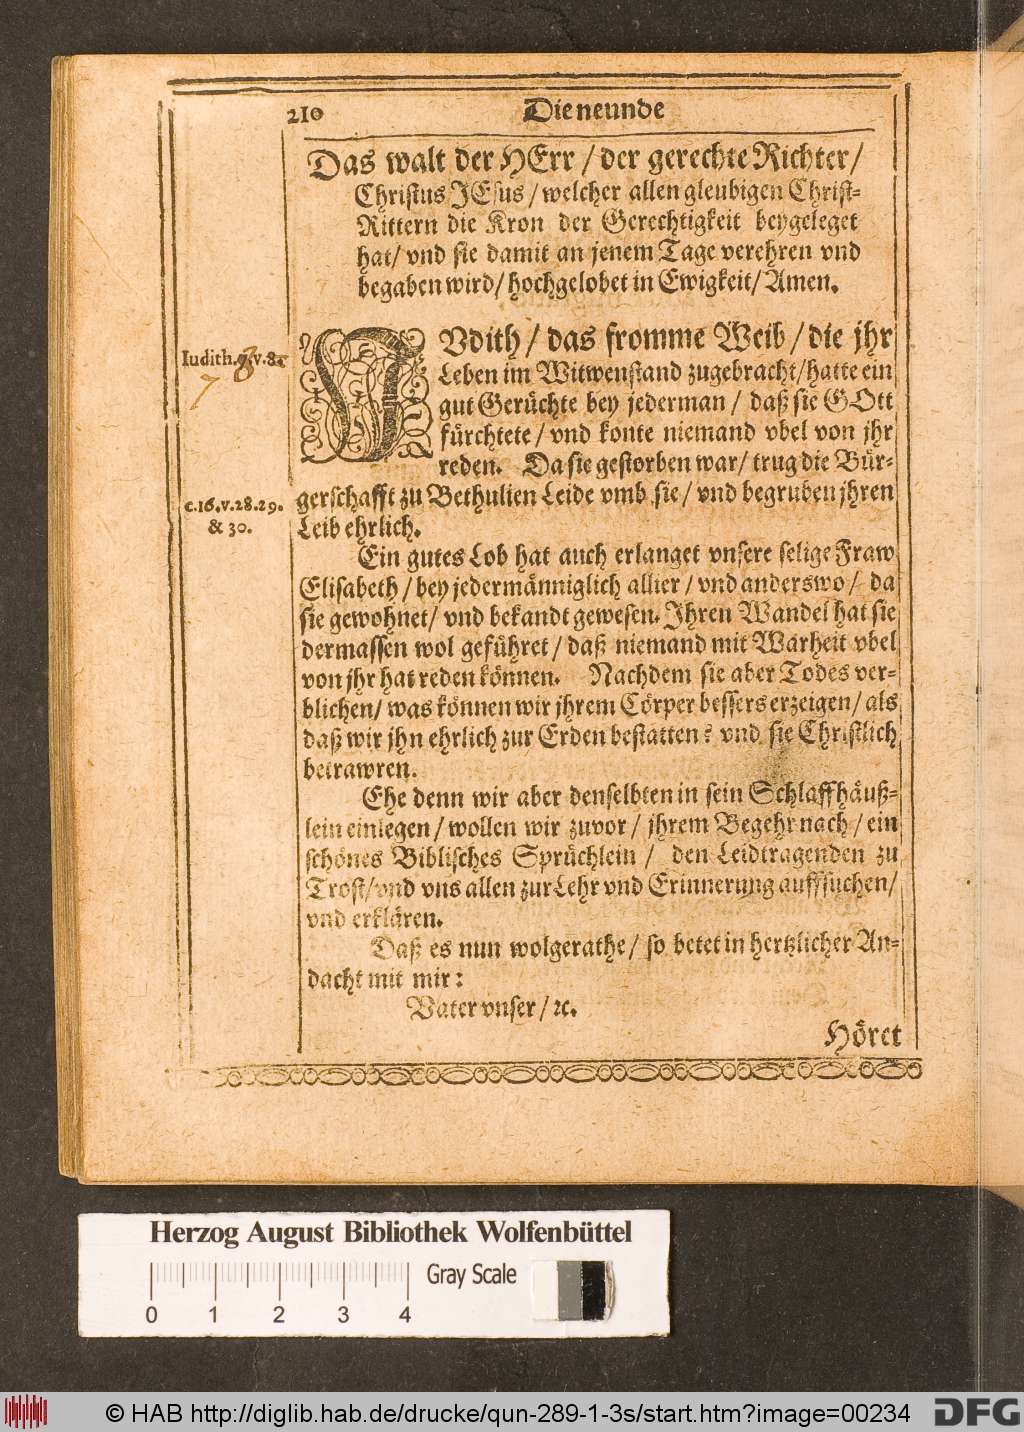 210 Die neunde
Das walt der HErr / der gerechte Richter /
Christus JEsus / welcher allen gleubigen Christ-
Rittern die Kron der Gerechtigkeit beygeleget
hat / vnd sie damit an jenem Tage verehren vnd
begaben wird / hochgelobet in Ewigkeit / Amen.
Iudith. v. 8.
7 8
JVdith / das fromme Weib / die jhr
Leben im Witwenstand zugebracht / hatte ein
gut Gerüchte bey jederman / daß sie GOtt
fürchtete / vnd konte niemand vbel von jhr
reden. Da sie gestorben war / trug die Bür-
c. 16. v. 28. 29.
& 30.
gerschafft zu Bethulien Leide vmb sie / vnd begruben jhren
Leib ehrlich.
Ein gutes Lob hat auch erlanget vnsere selige Fraw
Elisabeth / bey jedermänniglich allier / vnd anderswo / da
sie gewohnet / vnd bekandt gewesen. Ihren Wandel hat sie
dermassen wol geführet / daß niemand mit Warheit vbel
von jhr hat reden können. Nachdem sie aber Todes ver-
blichen / was können wir jhrem Cörper bessers erzeigen / als
daß wir jhn ehrlich zur Erden bestatten? vnd sie Christlich
betrawren.
Ehe denn wir aber denselbten in sein Schlaffhäuß-
lein einlegen / wollen wir zuvor / jhrem Begehr nach / ein
schönes Biblisches Sprüchlein / den Leidtragenden zu
Trost / vnd vns allen zur Lehr vnd Erinnerung auffsuchen /
vnd erklären.
Daß es nun wolgerathe / so betet in hertzlicher An-
dacht mit mir:
Vater vnser / ꝛc.
Höret
Herzog August Bibliothek Wolfenbüttel
Gray Scale
0 1 2 3 4
© HAB http://diglib.hab.de/drucke/qun-289-1-3s/start.htm?image=00234
DFG